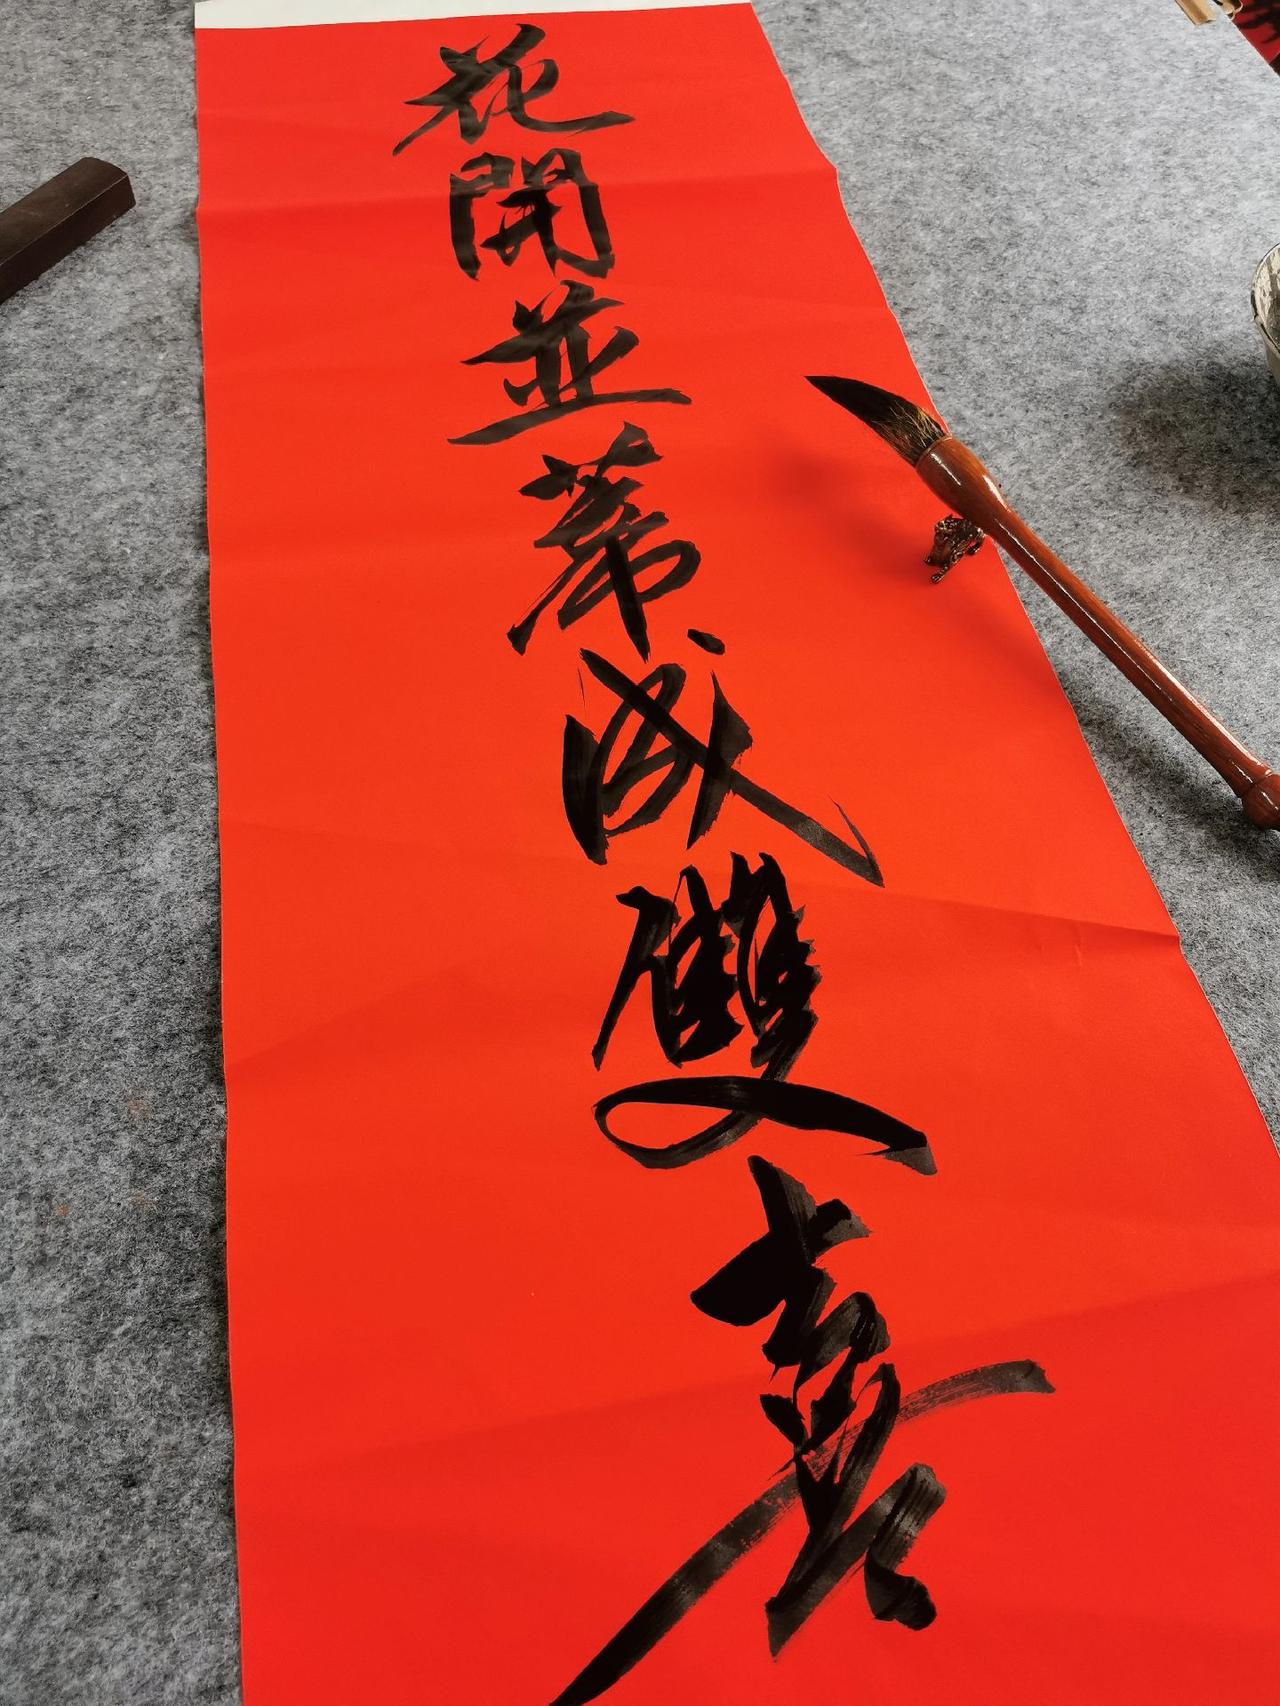 花開並蒂成雙喜